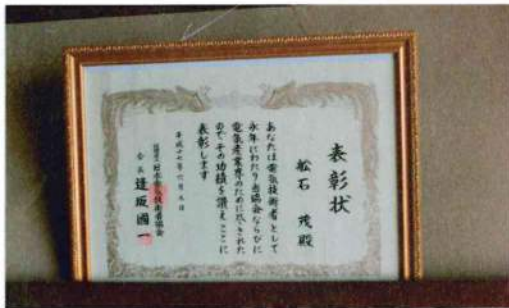 表彰状
船石 茂殿
あなたは電気技術者として
永年にわたり当協会ならびに
電気産業界のために尽された
のでその功績を讃えここに
表彰します
平成十七年六月九日
社団法人 日本電気技術者協会
会長 逢坂國一